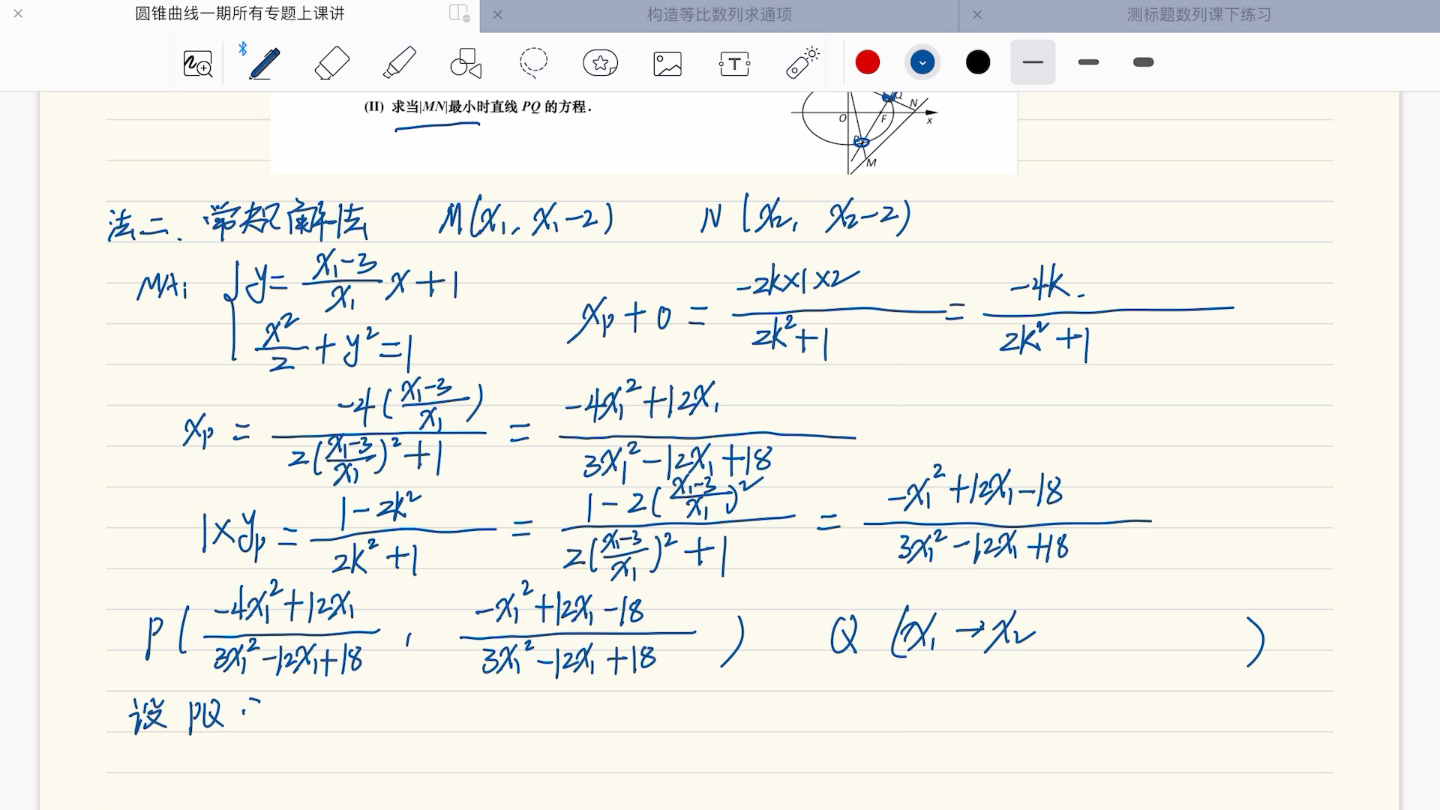 圆锥曲线一期所有专题上课讲
构造等比数列求通项
测标题数列课下练习
(II) 求当|MN|最小时直线 PQ 的方程.
O F N x
M
法二、常规解法 M(x₁, x₁-2) N(x₂, x₂-2)
MA₁ { y = \frac{x₁-3}{x₁} x + 1
\frac{x²}{2} + y² = 1
x_p + 0 = \frac{-2k×1×2}{2k²+1} = \frac{-4k}{2k²+1}
x_p = \frac{-4(\frac{x₁-3}{x₁})}{2(\frac{x₁-3}{x₁})²+1} = \frac{-4x₁²+12x₁}{3x₁²-12x₁+18}
1×y_p = \frac{1-2k²}{2k²+1} = \frac{1-2(\frac{x₁-3}{x₁})²}{2(\frac{x₁-3}{x₁})²+1} = \frac{-x₁²+12x₁-18}{3x₁²-12x₁+18}
P(\frac{-4x₁²+12x₁}{3x₁²-12x₁+18}, \frac{-x₁²+12x₁-18}{3x₁²-12x₁+18}) Q(x₁→x₂ )
设 PQ: